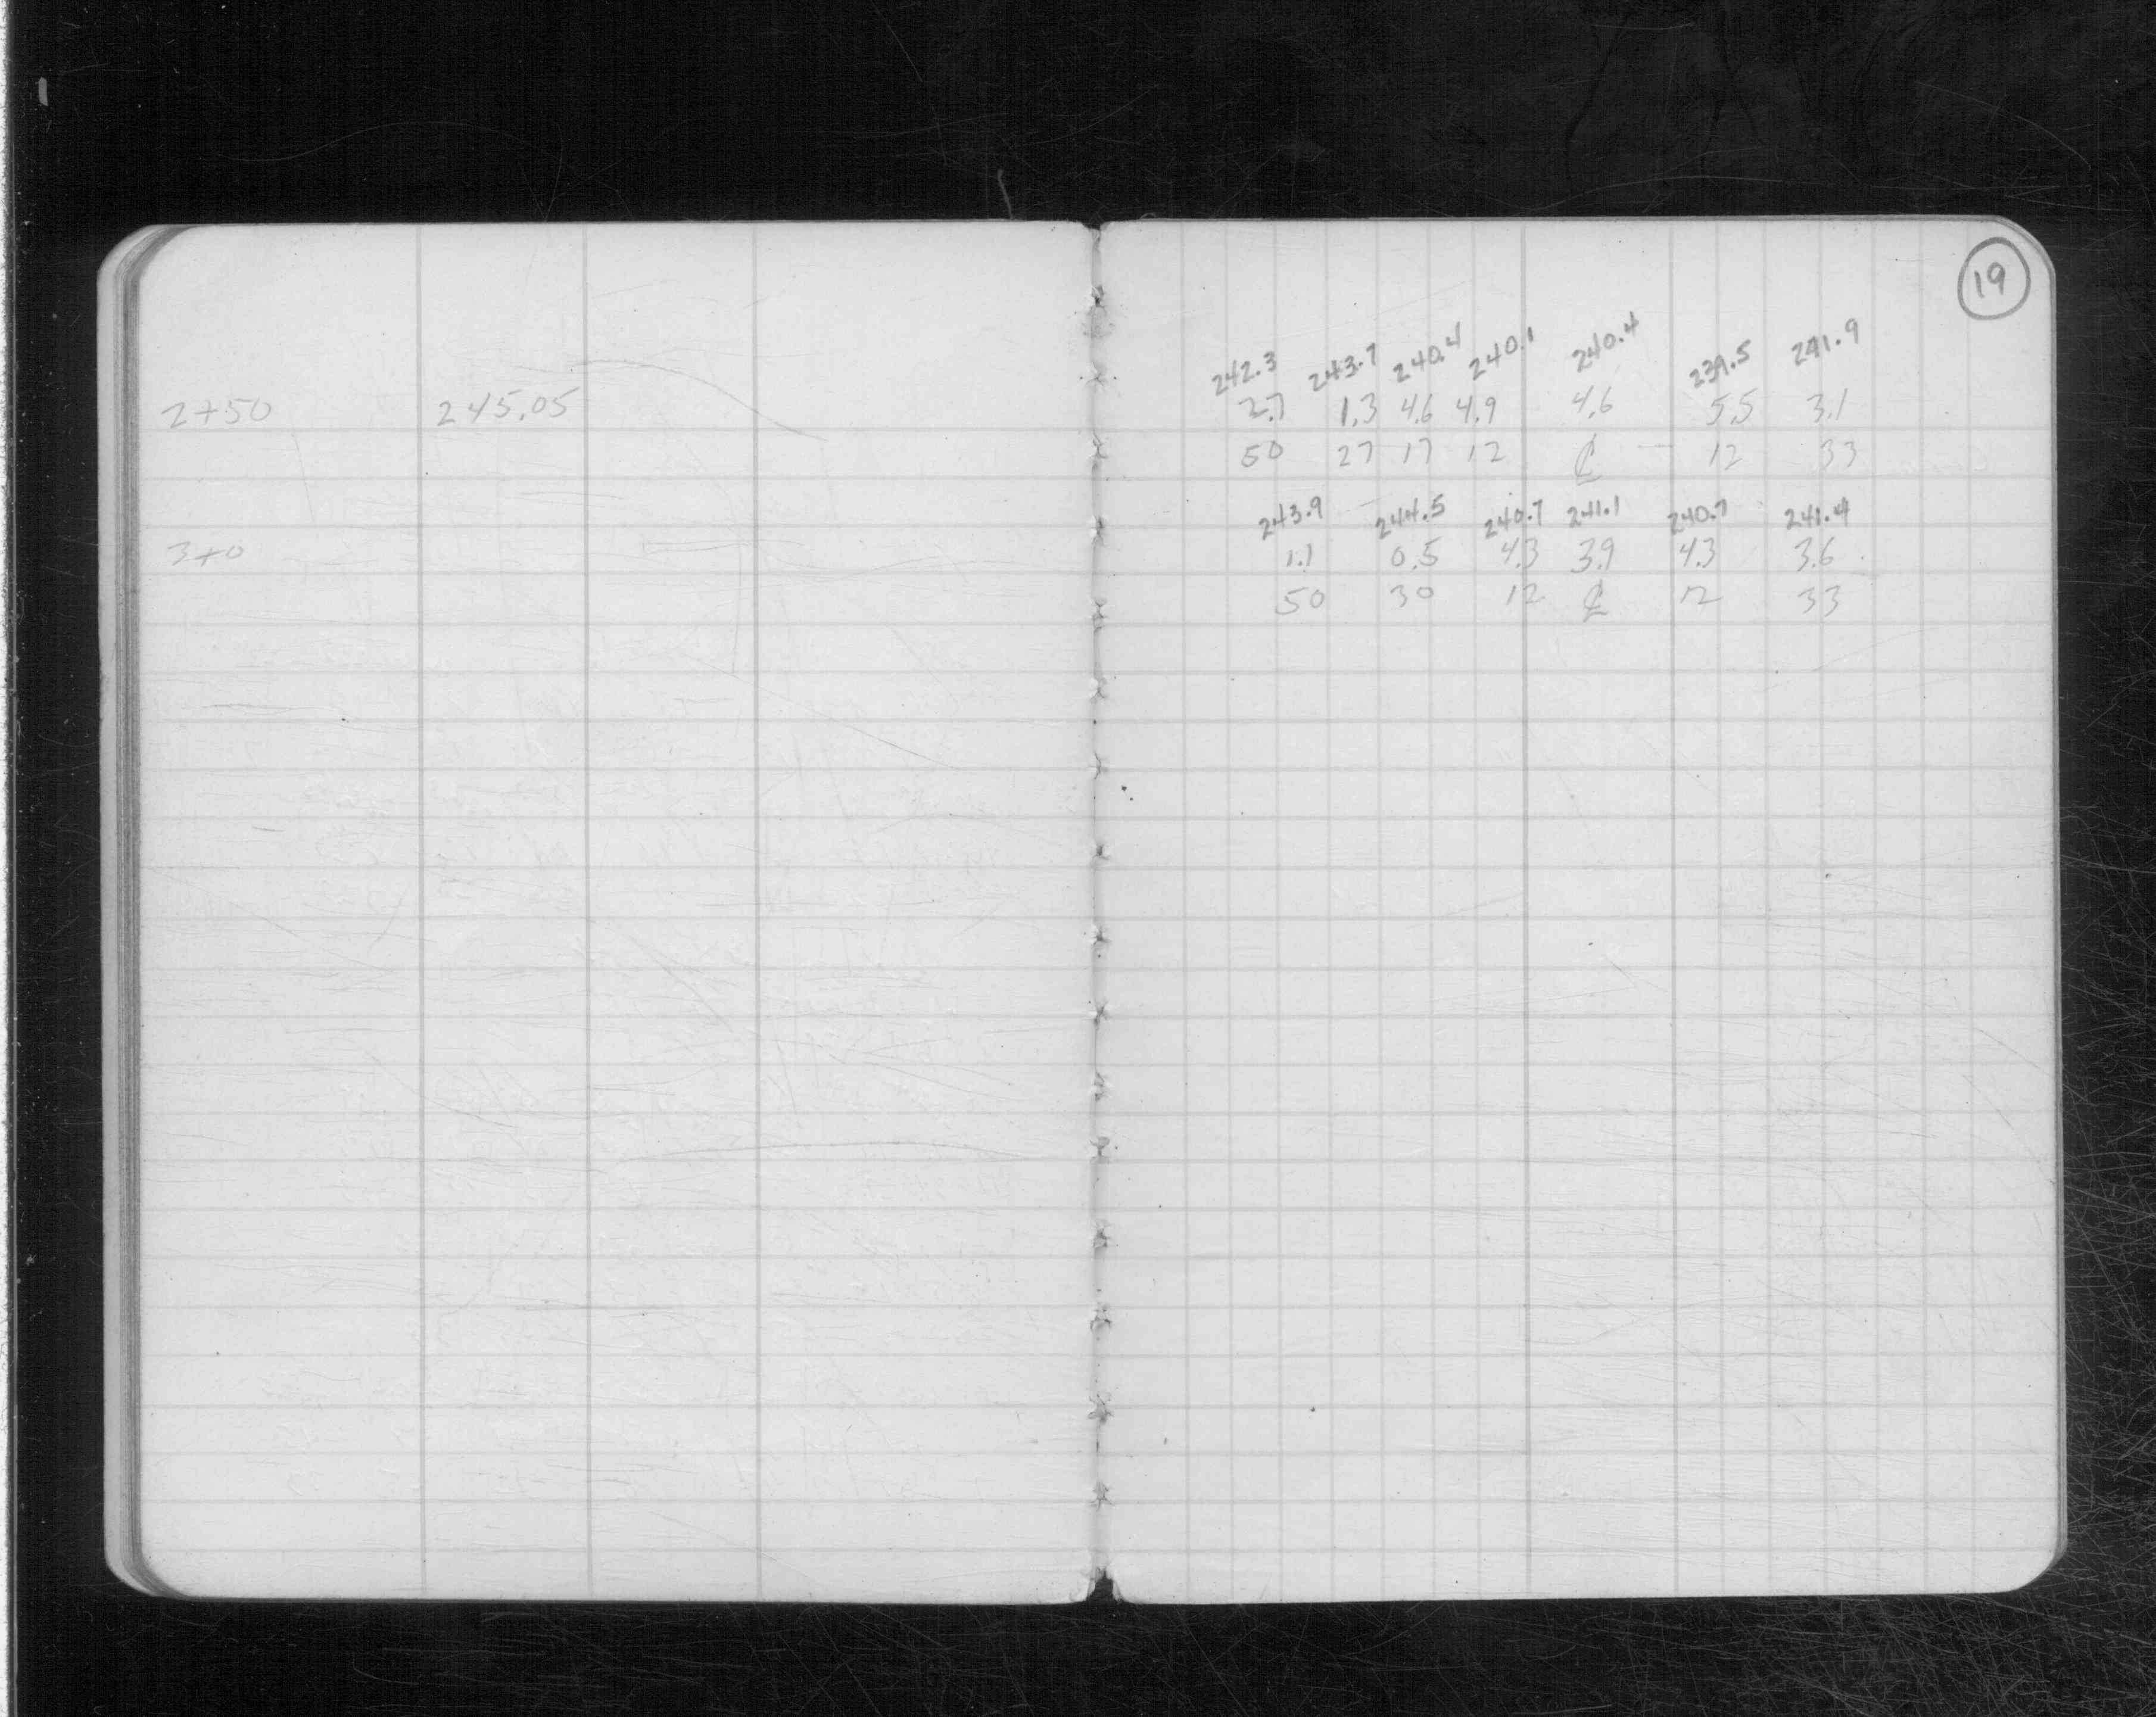 19
242.3 243.7 240.4 240.1 240.4 239.5 241.9
2+50 245.05 2.7 1.3 4.6 4.9 4.6 5.5 3.1
50 27 17 12 ℄ 12 33
243.9 244.5 240.7 241.1 240.7 241.4
3+0 1.1 0.5 4.3 3.9 4.3 3.6
50 30 12 ℄ 12 33